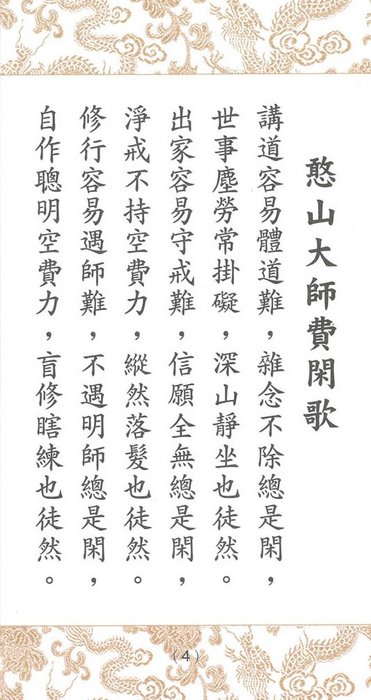 憨山大師費閑歌
講道容易體道難，雜念不除總是閑，
世事塵勞常掛礙，深山靜坐也徒然。
出家容易守戒難，信願全無總是閑，
淨戒不持空費力，縱然落髮也徒然。
修行容易遇師難，不遇明師總是閑，
自作聰明空費力，盲修瞎練也徒然。
(4)